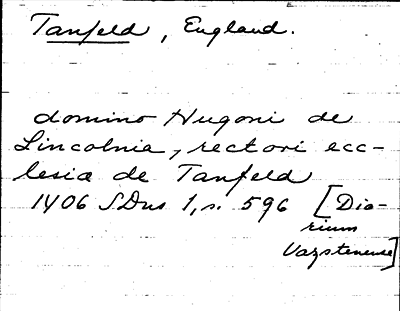 Tanfeld, England.
domino Hugoni de
Lincolnia, rectori ecc-
lesiæ de Tanfeld
1406 SDns 1, s. 596 [Dia-
rium
Vazstenense]